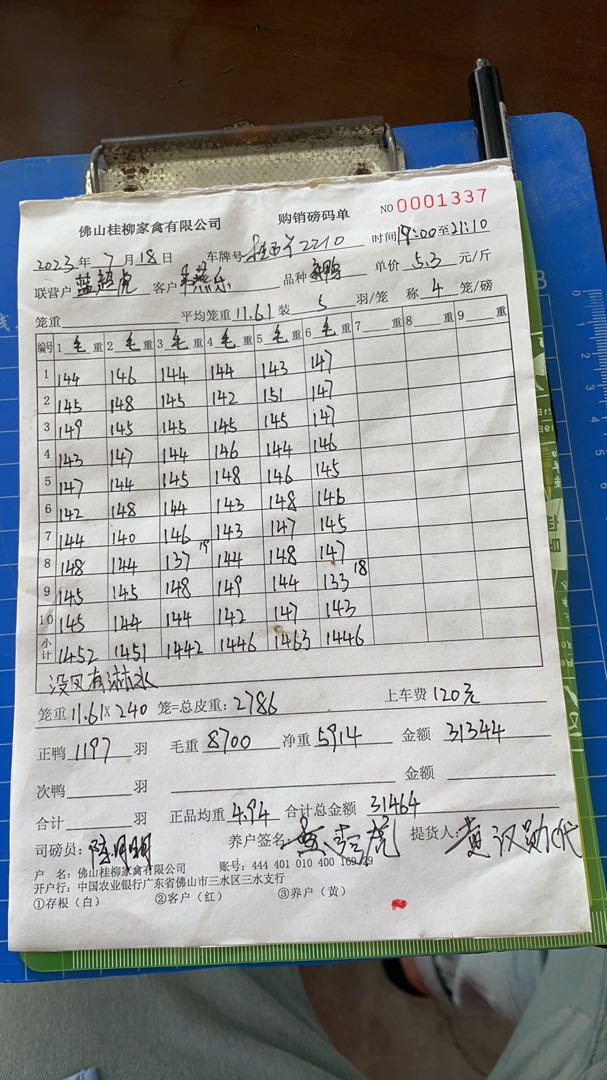 佛山桂柳家禽有限公司 购销磅码单 NO 0001337
2023年7月18日 车牌号 2210 时间19:00至21:10
联营户 蓝超虎 客户 品种 单价 5.3 元/斤
笼重 平均笼重 11.61 装 5 羽/笼 称 4 笼/磅
编号 1 毛 重 2 毛 重 3 毛 重 4 毛 重 5 毛 重 6 毛 重 7 重 8 重 9 重
1 144 146 144 144 143 147
2 145 148 145 142 151 147
3 149 145 145 145 145 147
4 143 147 144 146 144 146
5 147 144 145 148 146 145
6 142 148 144 143 148 146
7 144 140 146 143 147 145
8 148 144 137 19 144 148 147
9 145 145 148 149 144 133 18
10 145 144 144 142 147 143
小计 1452 1451 1442 1446 1463 1446
没有淋水
笼重 11.61 X 240 笼=总皮重: 2786 上车费 120元
正鸭 1197 羽 毛重 8700 净重 5914 金额 31344
次鸭 羽 金额
合计 羽 正品均重 4.94 合计总金额 31464
司磅员: 陈明明 养户签名: 提货人: 黄汉勋代
户 名: 佛山桂柳家禽有限公司 账号: 444 401 010 400 169 79
开户行: 中国农业银行广东省佛山市三水区三水支行
①存根（白） ②客户（红） ③养户（黄）